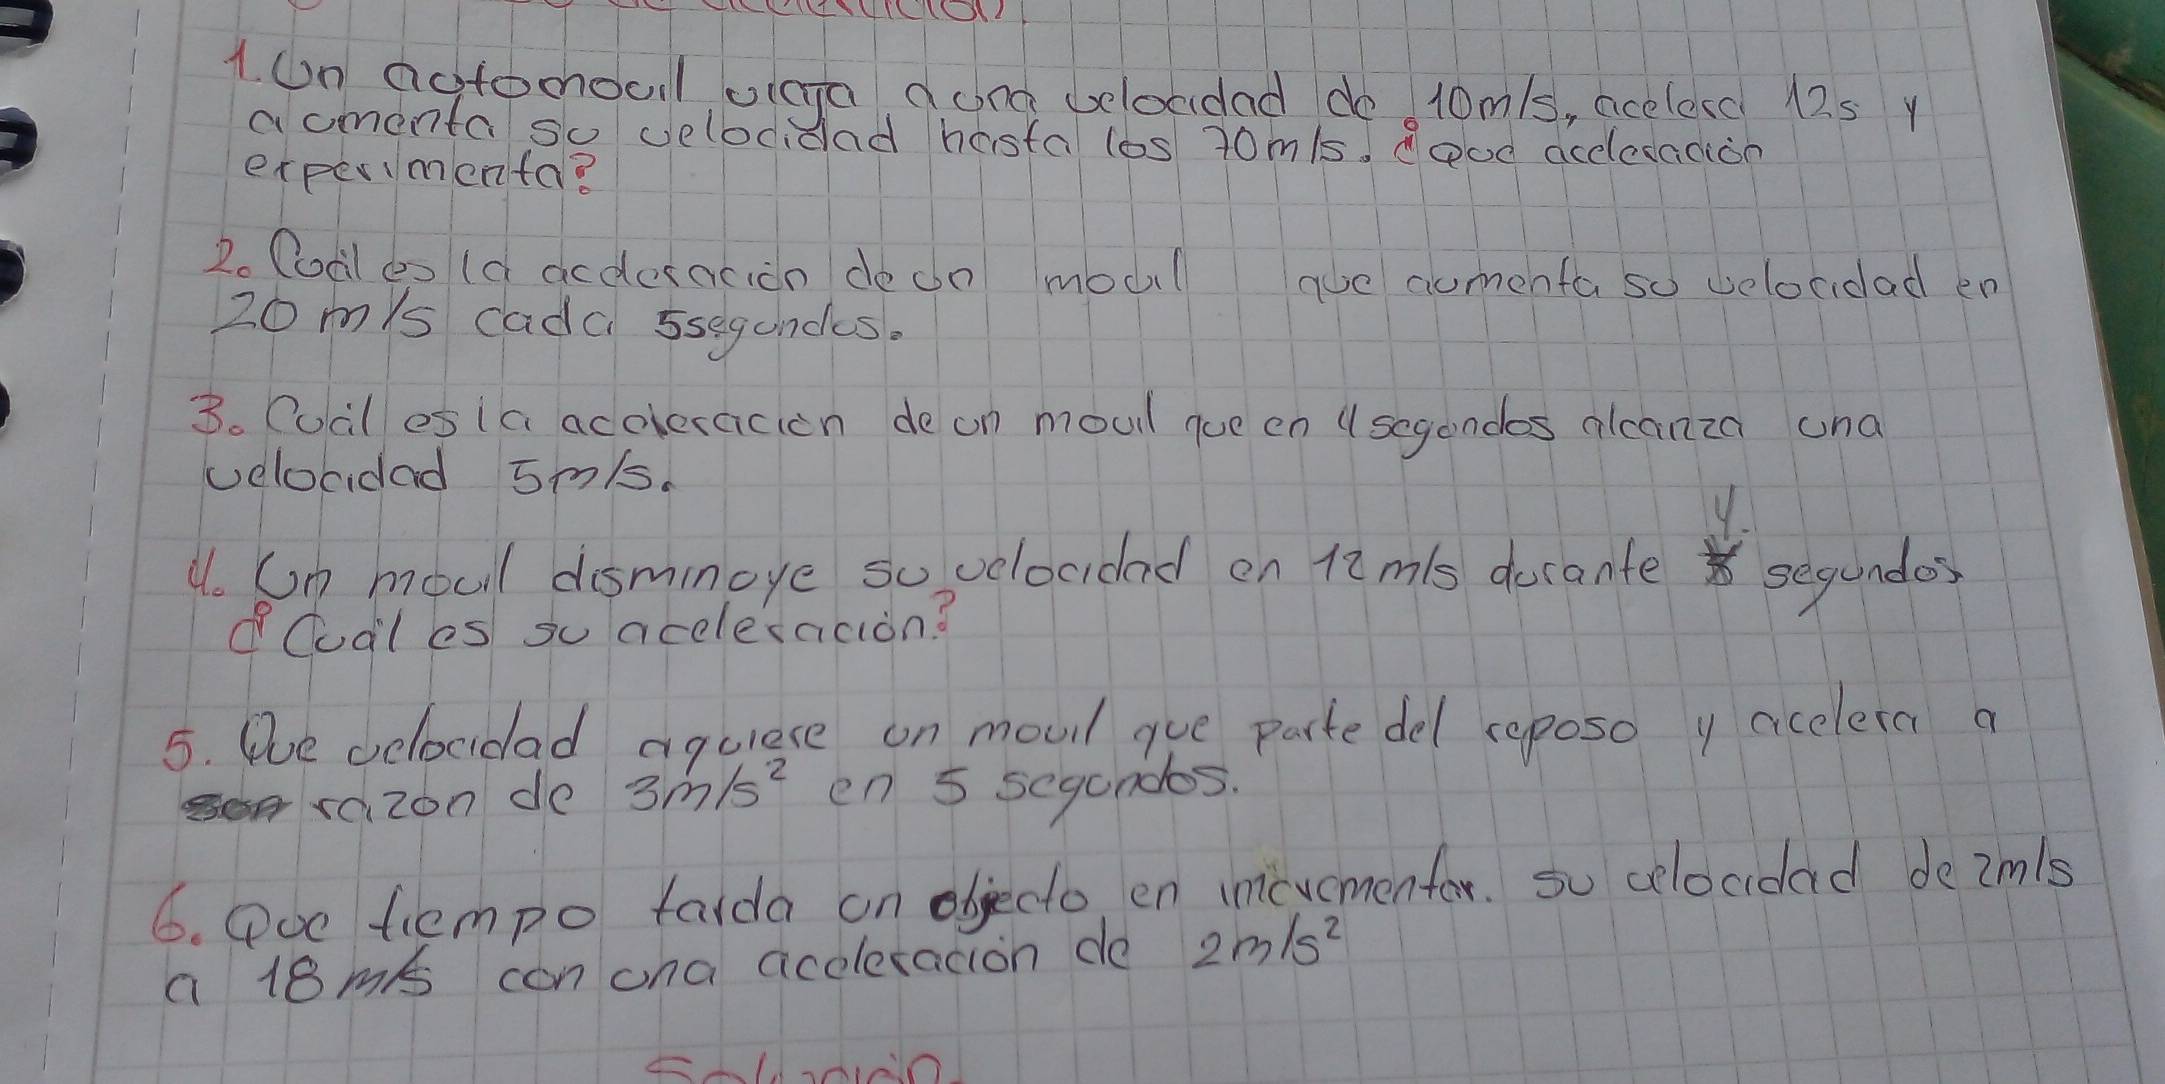 de aceleración
1. Un automovil viaja a una velocidad de 10m/s, acelera 12s y
aumenta su velocidad hasta los 70m/s. ¿Que aceleración
experimenta?
2. Cuál es la aceleración de un movil que aumenta su velocidad en
20 m/s cada 5segundos.
3. Cuál es la aceleración de un movil que en 4 segundos alcanza una
velocidad 5m/s.
4. Un movil disminuye su velocidad en 12 m/s durante 4 segundos
¿Cuál es su aceleración?
5. Que velocidad aquiere un movil que parte del reposo y acelera a
razon de 3m/s² en 5 segundos.
6. Que tiempo tarda un objecto en incrementar. su velocidad de 2m/s
a 18 m/s con una aceleración de 2m/s²
Solución